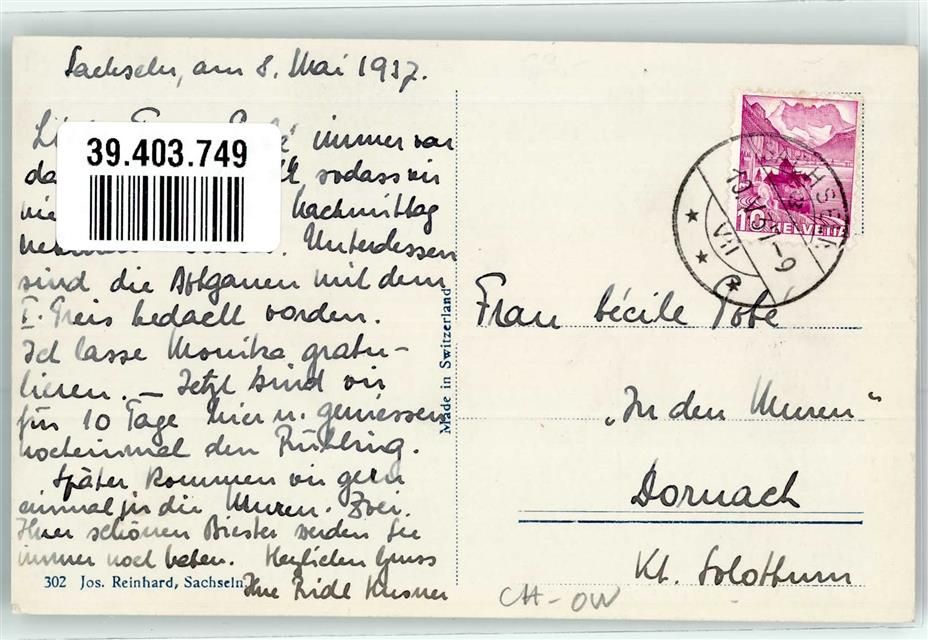 Sachseln, am 8. Mai 1937.
immer war
39.403.749
sodass wir
Nachmittag
Unterdessen
sind die Afghanen mit dem
I. Preis bedacht worden.
Ich lasse Monika gratu-
lieren. – Jetzt sind wir
für 10 Tage hier u. geniessen
nocheinmal den Frühling.
Später kommen wir gern
einmal in die Muren. Zwei
Ihrer schönen Biester werden Sie
immer noch haben. Herzlichen Gruss
Ihre
302 Jos. Reinhard, Sachseln
Made in Switzerland
10
HELVETIA
Frau Cécile Tobé
„In den Muren"
Dornach
Kt. Solothurn
CH-OW